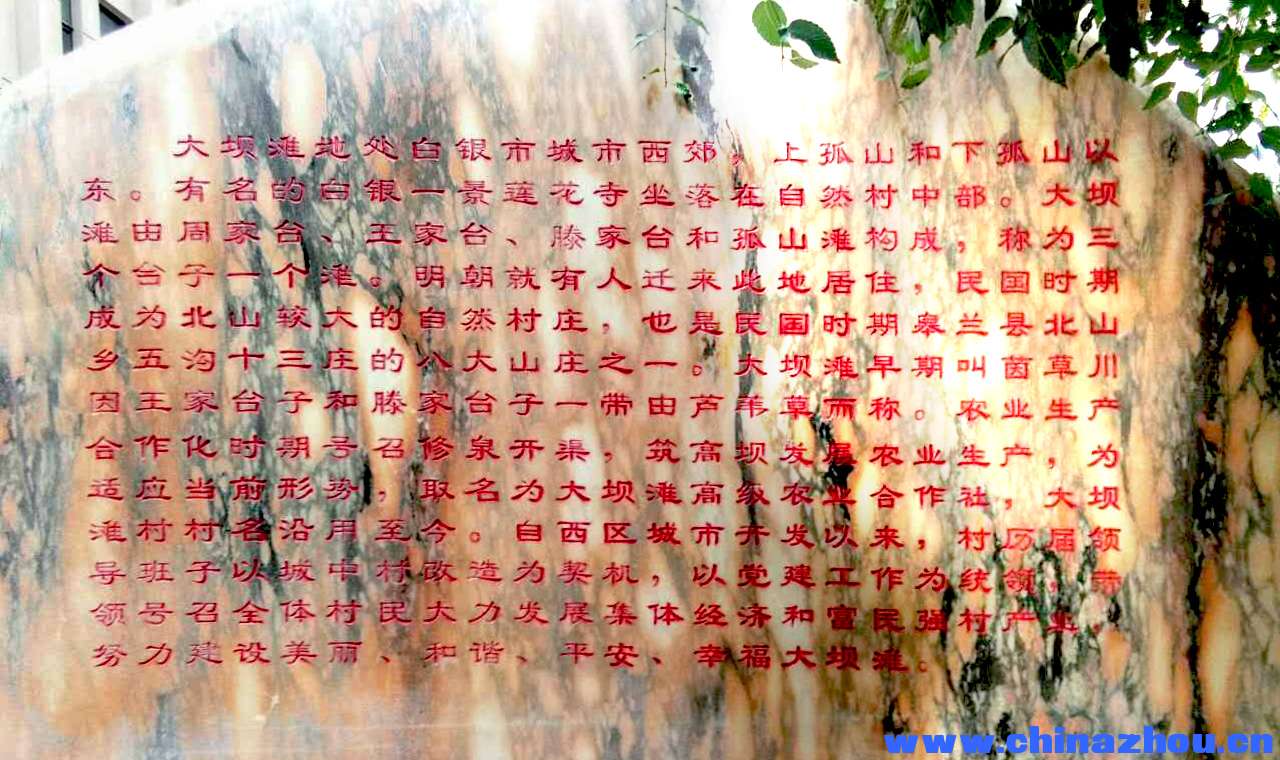 大坝滩地处白银市城市西郊，上孤山和下孤山以
东。有名的白银一景莲花寺坐落在自然村中部。大坝
滩由周家台、王家台、滕家台和孤山滩构成，称为三
个台子一个滩。明朝就有人迁来此地居住，民国时期
成为北山较大的自然村庄，也是民国时期皋兰县北山
乡五沟十三庄的八大山庄之一。大坝滩早期叫茵草川
因王家台子和滕家台子一带由芦苇草而称。农业生产
合作化时期号召修泉开渠，筑高坝发展农业生产，为
适应当前形势，取名为大坝滩高级农业合作社，大坝
滩村村名沿用至今。自西区城市开发以来，村历届领
导班子以城中村改造为契机，以党建工作为统领，带
领号召全体村民大力发展集体经济和富民强村产业，
努力建设美丽、和谐、平安、幸福大坝滩。
www.chinazhou.cn